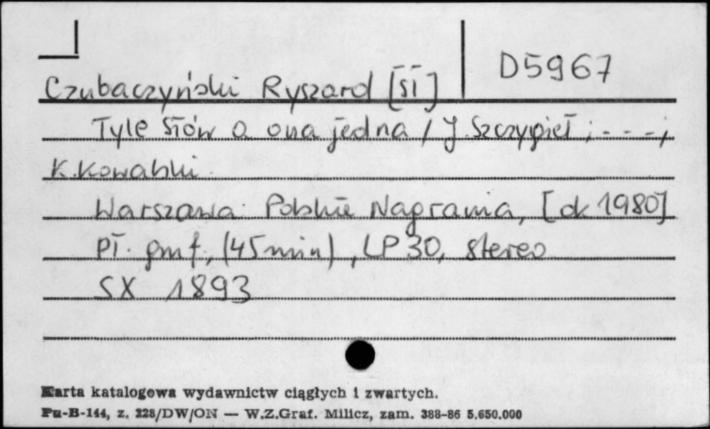 D5967
Czubaczyński Ryszard [sł]
Tyle słów a ona jedna / J. Szczygieł ; - - - ;
K. Kowalski.
Warszawa: Polskie Nagrania, [ok. 1980]
pł. gmf., (45 min), LP 30, stereo
SX 1893
Karta katalogowa wydawnictw ciągłych i zwartych.
Pu-B-144, z. 228/DW/ON — W.Z.Graf. Milicz, zam. 388-86 5.650.000